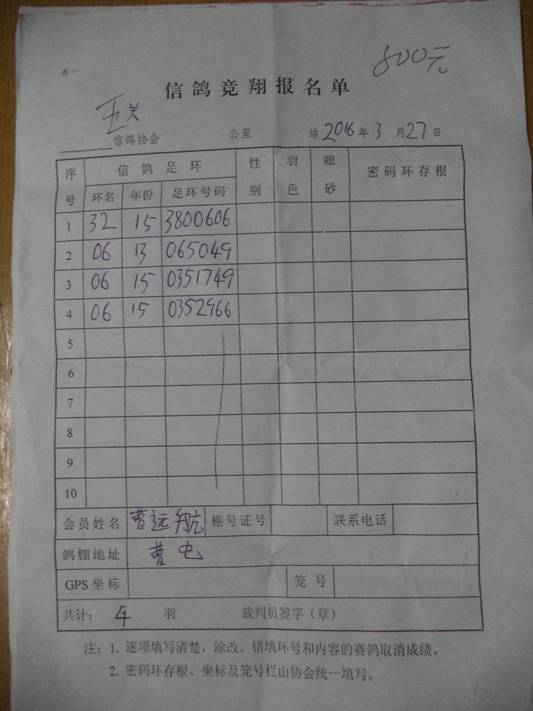 表一
800元
信鸽竞翔报名单
五关
信鸽协会 公里 站 2016年 3月 27日
序号 信鸽足环 性别 羽色 眼砂 密码环存根
环名 年份 足环号码
1 32 15 3800606
2 06 13 065049
3 06 15 0351749
4 06 15 0352966
5
6
7
8
9
10
会员姓名 曹远航 棚号证号 联系电话
鸽棚地址 曹屯
GPS坐标 笼号
共计：4 羽 裁判员签字（章）
注：1. 逐项填写清楚，涂改、错填环号和内容的赛鸽取消成绩。
2. 密码环存根、坐标及笼号栏由协会统一填写。